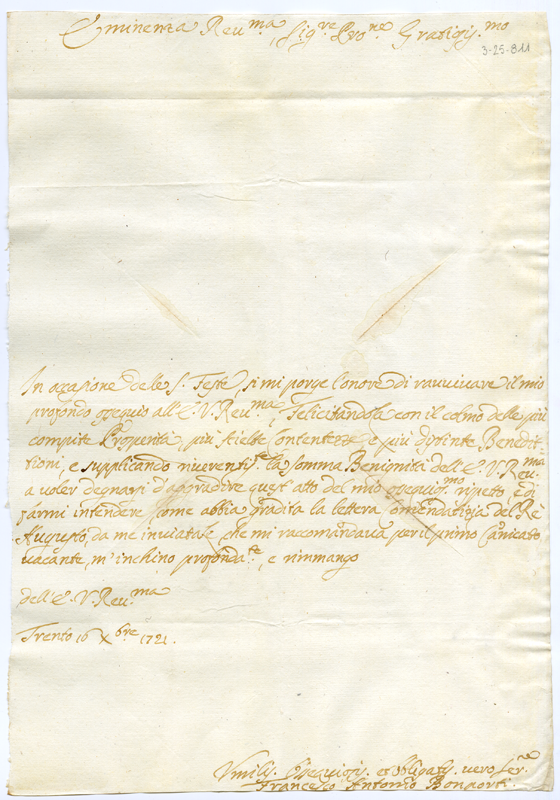 Eminenza Reu.ma Sig.re Pro.ne Gratiss.mo
3-25-811
In occasione delle S. Feste, si mi porge l'onore di ravvivare il mio
profondo ossequio all'E. V. Reu.ma, Felicitandola con il colmo delle più
compite Prosperità, più scielte Contentezze e più distinte Benedit-
tioni, e supplicando riverentis.te la somma Benignità dell'E. V. Reu.ma
a voler degnarsi d'aggradire quest'atto del mio ossequiosis.mo rispetto, e di
farmi intendere come abbia gradita la lettera Comendatizia del Rè
Augusto, da me inviatale, che mi raccomandava per il primo Canicato
vacante, m'inchino profonda.te, e rimmango
dell'E. V. Reu.ma
Trento 16 Xbre 1721.
Umilis. Ossequiosis. et obligatis. vero Ser.re
Francesco Antonio Bonporti